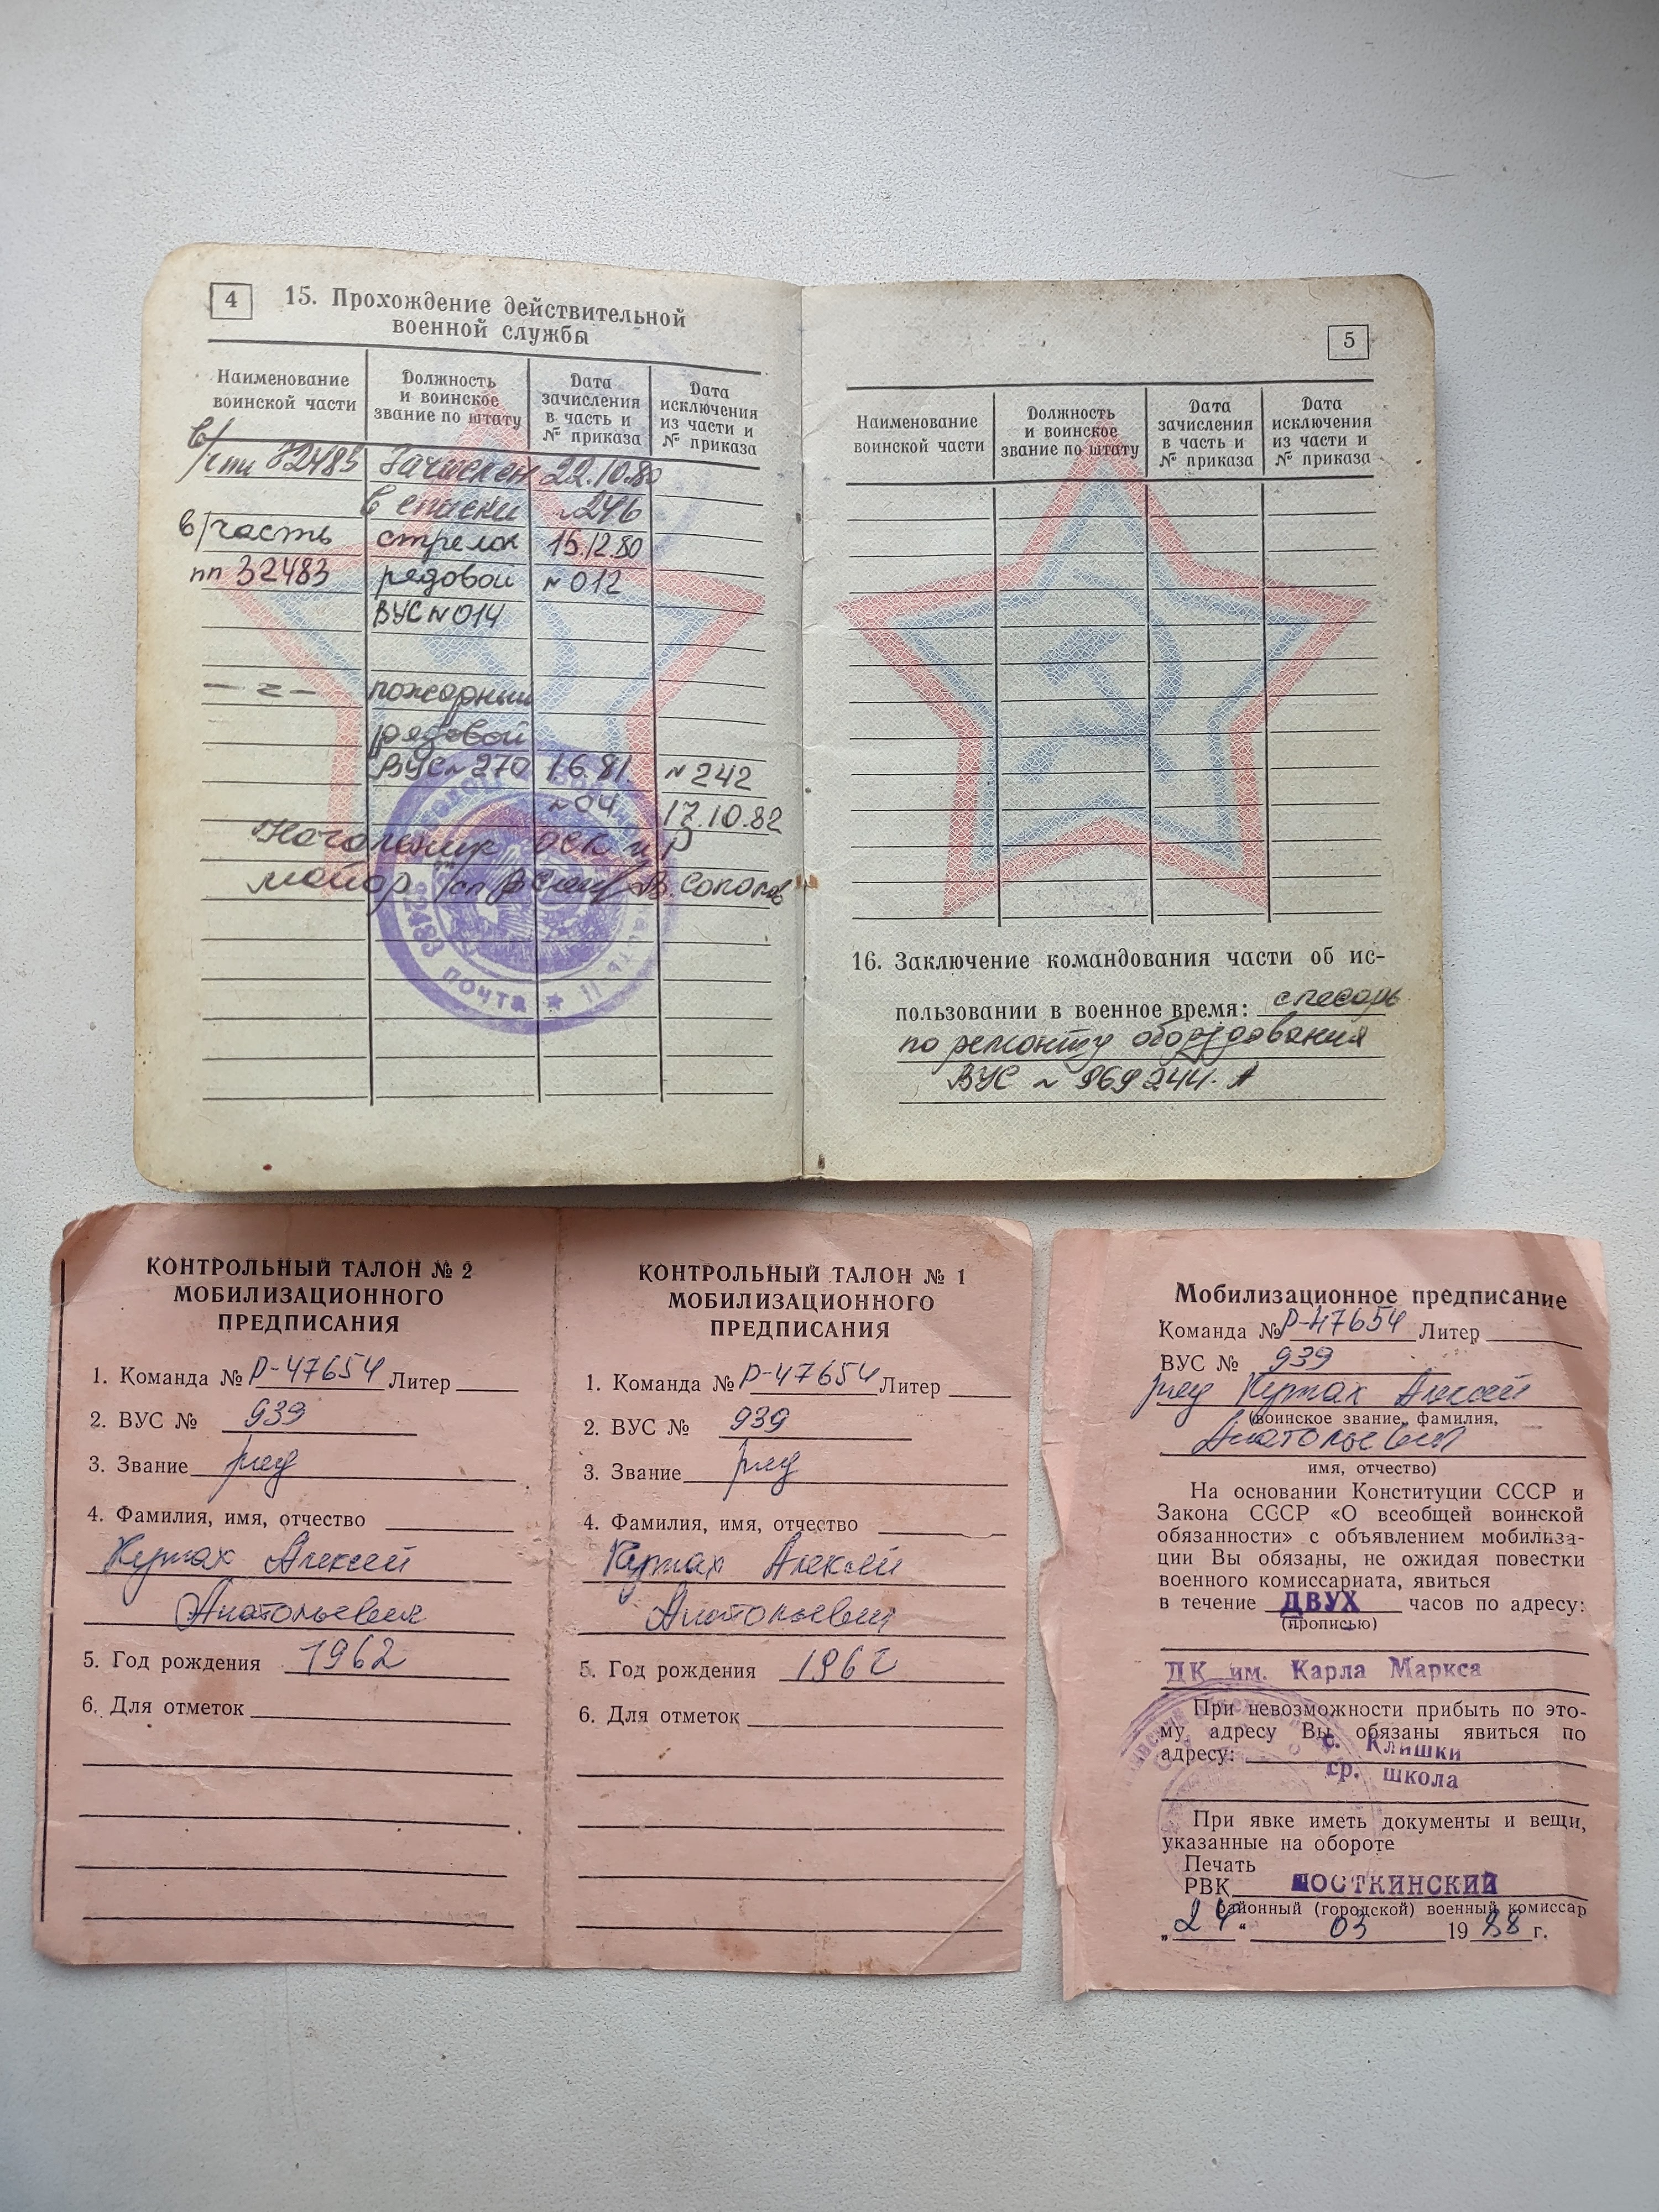 4
15. Прохождение действительной
военной службы
Наименование
воинской части
Должность
и воинское
звание по штату
Дата
зачисления
в часть и
№ приказа
Дата
исключения
из части и
№ приказа
Зачислен 22.10.80
в списки №246
в/часть стрелок 15.12.80
пп 32483 рядовой №012
ВУС №014
пожарный
рядовой
ВУС № 270 1.6.81. №242
№04 17.10.82
Начальник
майор
почта
5
Наименование
воинской части
Должность
и воинское
звание по штату
Дата
зачисления
в часть и
№ приказа
Дата
исключения
из части и
№ приказа
16. Заключение командования части об ис-
пользовании в военное время: слесарь
по ремонту оборудования
ВУС № 969244. А
КОНТРОЛЬНЫЙ ТАЛОН № 2
МОБИЛИЗАЦИОННОГО
ПРЕДПИСАНИЯ
1. Команда № Р-47654 Литер
2. ВУС № 939
3. Звание ряд
4. Фамилия, имя, отчество
Куртах Алексей
Анатольевич
5. Год рождения 1962
6. Для отметок
КОНТРОЛЬНЫЙ ТАЛОН № 1
МОБИЛИЗАЦИОННОГО
ПРЕДПИСАНИЯ
1. Команда № Р-47654 Литер
2. ВУС № 939
3. Звание ряд
4. Фамилия, имя, отчество
Куртах Алексей
Анатольевич
5. Год рождения 1962
6. Для отметок
Мобилизационное предписание
Команда № Р-47654 Литер
ВУС № 939
ряд Куртах Алексей
(воинское звание, фамилия,
Анатольевич
имя, отчество)
На основании Конституции СССР и
Закона СССР «О всеобщей воинской
обязанности» с объявлением мобилиза-
ции Вы обязаны, не ожидая повестки
военного комиссариата, явиться
в течение ДВУХ часов по адресу:
(прописью)
ДК им. Карла Маркса
При невозможности прибыть по это-
му адресу Вы обязаны явиться по
адресу: с. Клишки
ср. школа
При явке иметь документы и вещи,
указанные на обороте
Печать
РВК ШОСТКИНСКИЙ
районный (городской) военный комиссар
„24“ 03 1988 г.